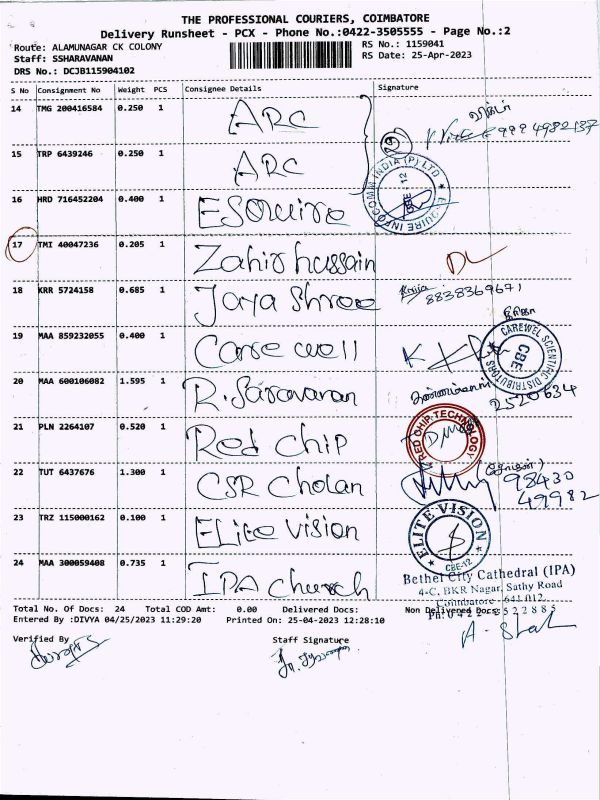 THE PROFESSIONAL COURIERS, COIMBATORE
Delivery Runsheet - PCX - Phone No.:0422-3505555 - Page No.:2
Route: ALAMUNAGAR CK COLONY
RS No.: 1159041
Staff: SSHARAVANAN
RS Date: 25-Apr-2023
DRS No.: DCJB115904102
S No Consignment No Weight PCS Consignee Details Signature
14 TMG 200416584 0.250 1 ARC
15 TRP 6439246 0.250 1 ARC
16 HRD 716452204 0.400 1 ESquire
ESQUIRE INFOCOMM INDIA (P) LTD
CBE 12
17 TMI 40047236 0.205 1 Zahir hussain DL
18 KRR 5724158 0.685 1 Jaya Shree
8838369671
19 MAA 859232055 0.400 1 Care well
CAREWEL SCIENTIFIC DISTRIBUTORS
CBE
20 MAA 600106082 1.595 1 R. Saravanan
2520634
21 PLN 2264107 0.520 1 Red chip
RED CHIP TECHNOLOGY
22 TUT 6437676 1.300 1 CSR Cholan
98430
49982
23 TRZ 115000162 0.100 1 ELite Vision
ELITE VISION
CBE-12
24 MAA 300059408 0.735 1 IPA Church
Bethel City Cathedral (IPA)
4-C, BKR Nagar, Sathy Road
Coimbatore - 641 012.
Total No. Of Docs: 24 Total COD Amt: 0.00 Delivered Docs: Non Delivered Docs:
Entered By :DIVYA 04/25/2023 11:29:20 Printed On: 25-04-2023 12:28:10
Verified By Staff Signature